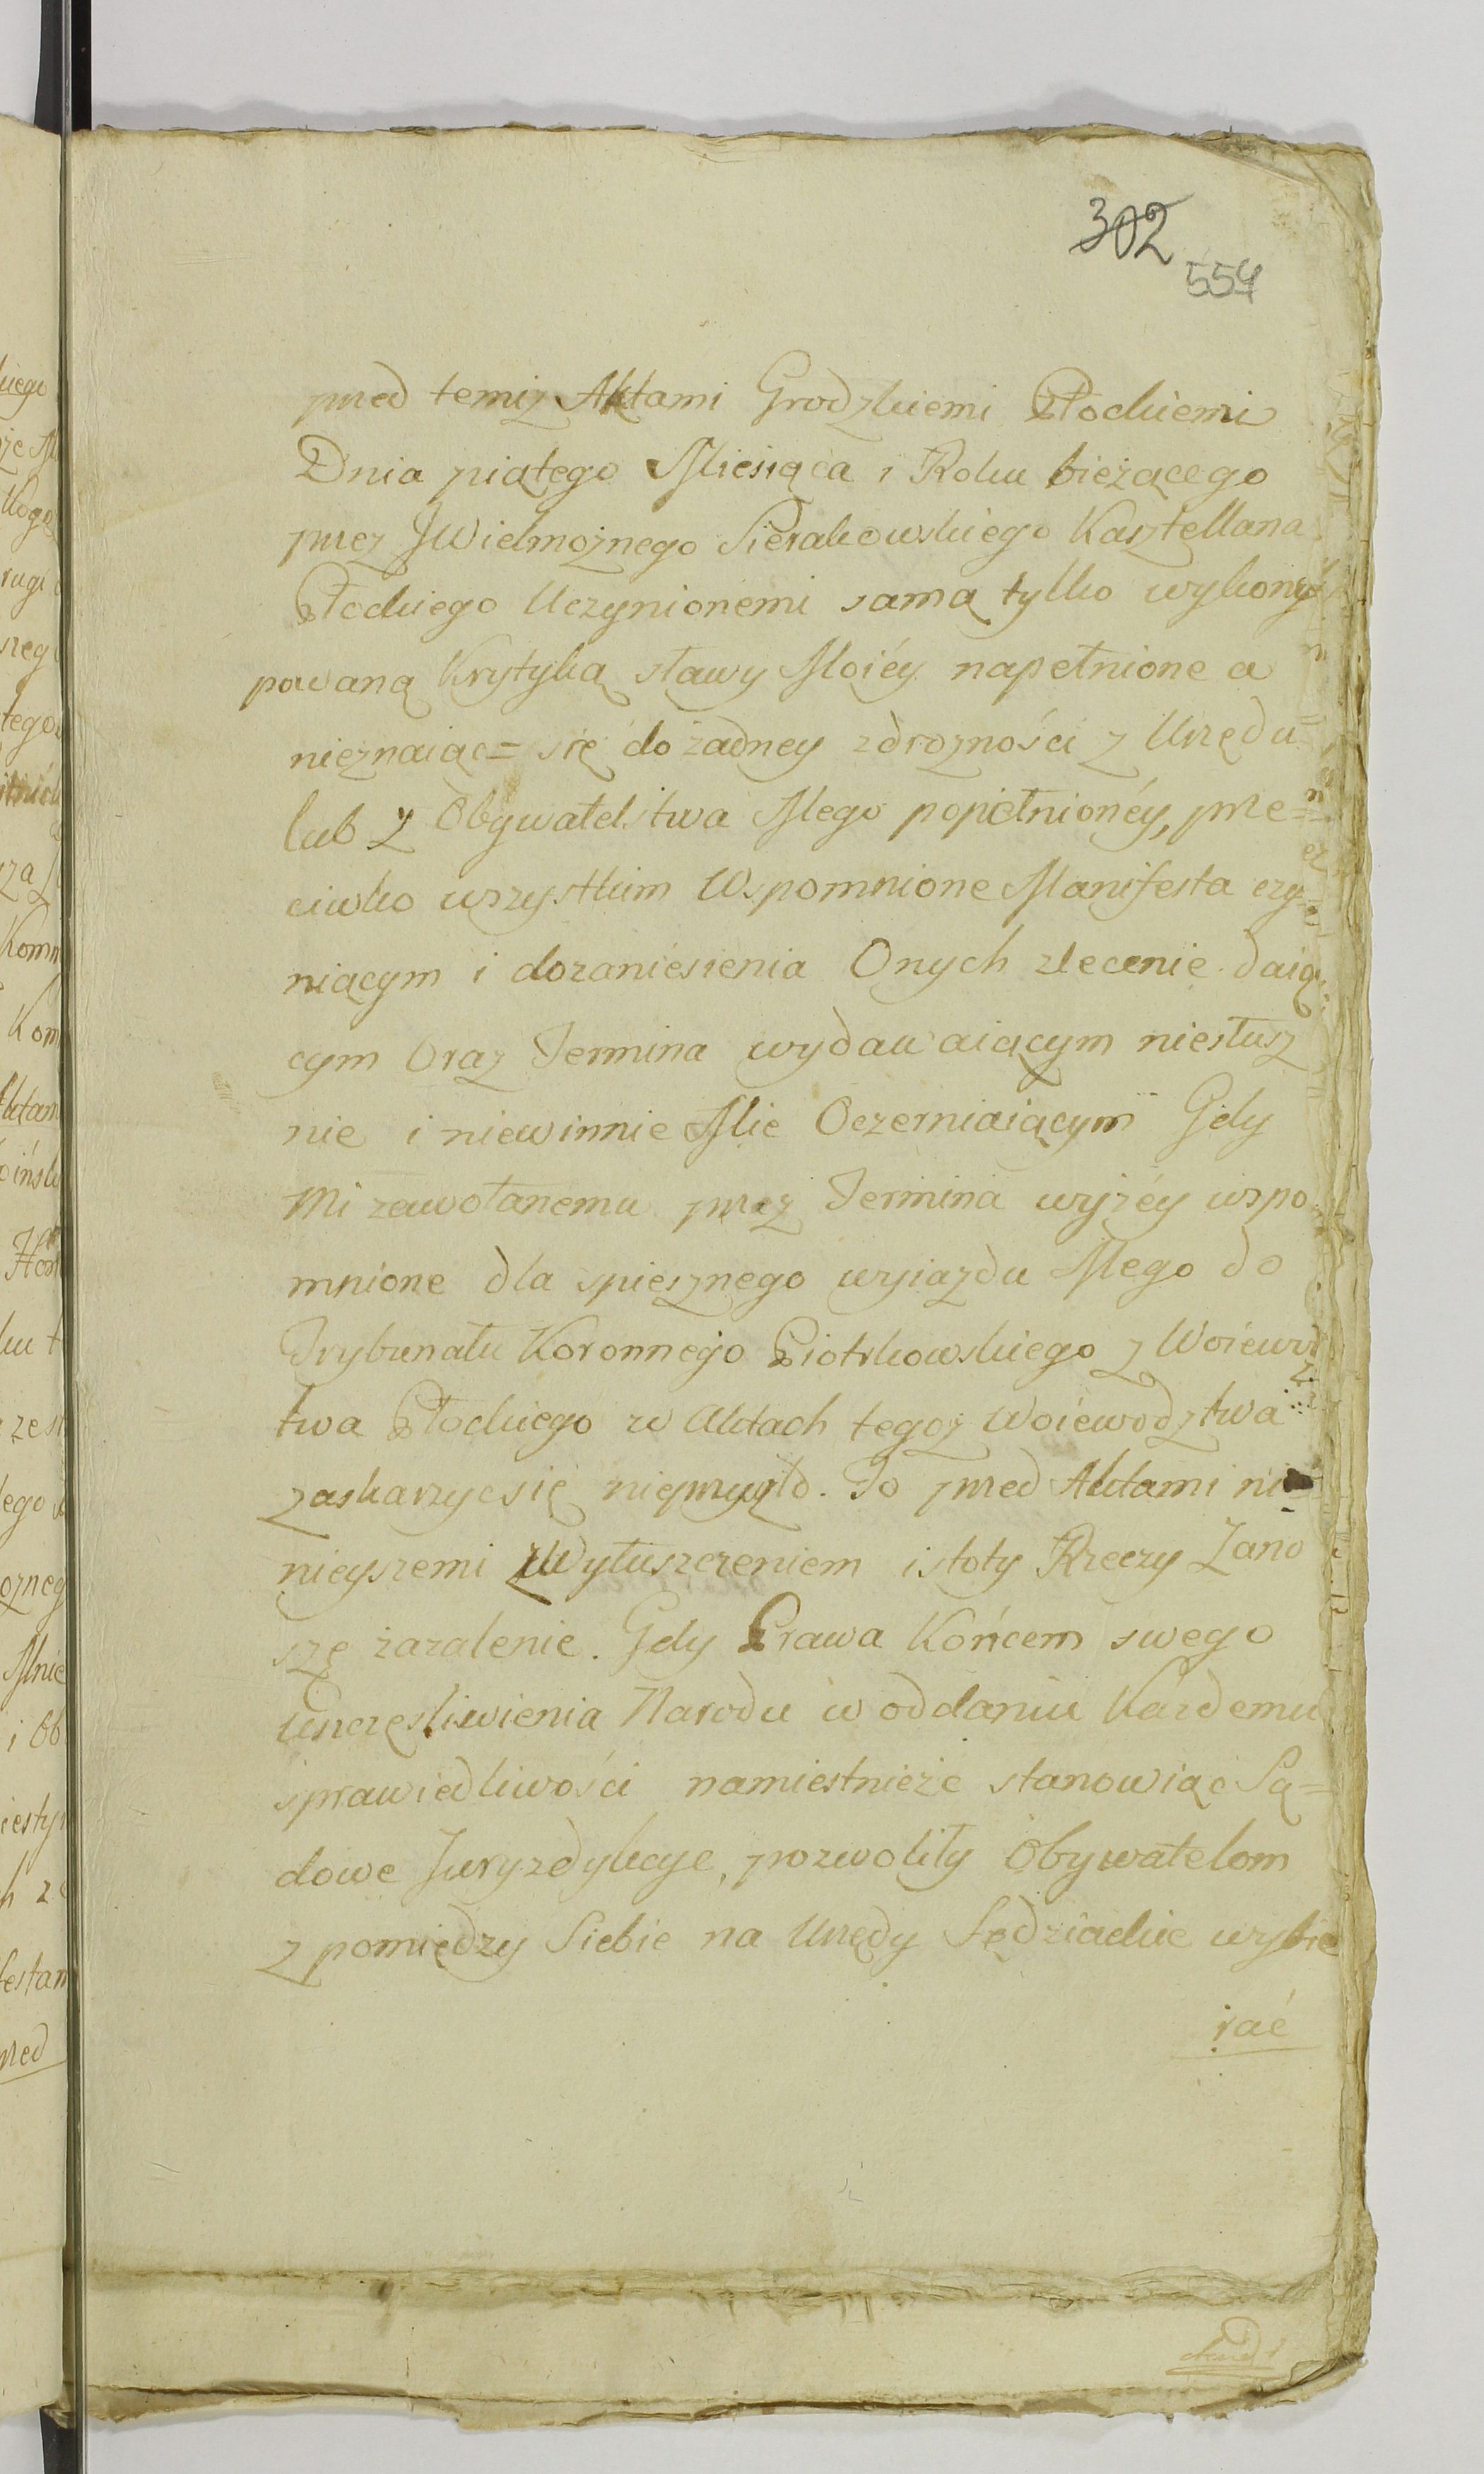 302
554
przed temiz Aktami Grodzkiemi Płockiemi
Dnia piątego Miesiąca i Roku bieżącego
przez JWielmoznego Sierakowskiego Kasztellana
Płockiego Uczynionemi samą tylko wykony
powaną Krytyką sławy Moiéy napełnione a
nieznaiąc= się do żadney zdrozności z Urzędu
lub z Obywatelstwa Mego popełnionéy, prze=
ciwko wszystkim Wspomnione Manifesta czy=
niącym i dozaniesienia Onych zlecenie daią
cym Oraz Termina wydawaiącym niesłusz
nie i niewinnie Mie Oczerniaiącym Gdy
Mi zawołanemu przez Termina wyżéy wspo
mnione dla spiesznego wyiazdu Mego do
Trybunału Koronnego Piotrkowskiego z Woiewodz
twa Płockiego w Aktach tegoz Woiewodztwa
zaskarzyc się nieprzyszło. To przed Aktami ni=
nieyszemi zWyłuszczeniem istoty Rzeczy Zano
szę zazalenie. Gdy Prawa Końcem swego
Uszczęsliwienia Narodu w oddaniu Każdemu
sprawiedliwości namiestnieże stanowiąc Są=
dowe Juryzdykcye, pozwoliły Obywatelom
z pomiędzy Siebie na Urzędy Sędziackie wybie
rać